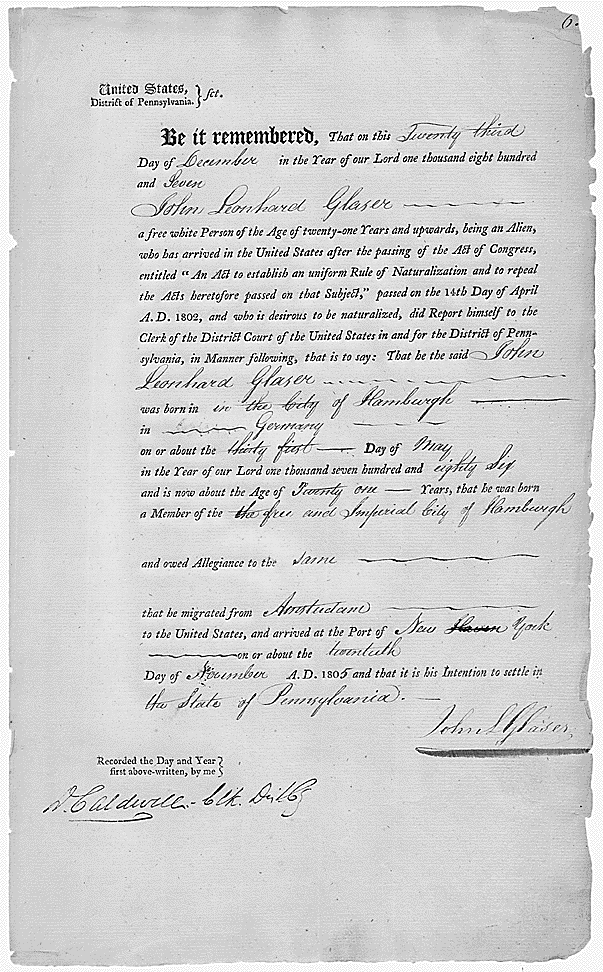 6.
United States,
District of Pennsylvania. } sct.
Be it remembered, That on this Twenty third
Day of December in the Year of our Lord one thousand eight hundred
and Seven
John Leonhard Glaser
a free white Person of the Age of twenty-one Years and upwards, being an Alien,
who has arrived in the United States after the passing of the Act of Congress,
entitled “An Act to establish an uniform Rule of Naturalization and to repeal
the Acts heretofore passed on that Subject,” passed on the 14th Day of April
A. D. 1802, and who is desirous to be naturalized, did Report himself to the
Clerk of the District Court of the United States in and for the District of Penn-
sylvania, in Manner following, that is to say: That he the said John
Leonhard Glaser
was born in in the City of Hamburgh
in Germany
on or about the thirty first Day of May
in the Year of our Lord one thousand seven hundred and eighty Six
and is now about the Age of Twenty one Years, that he was born
a Member of the the free and Imperial City of Hamburgh
and owed Allegiance to the same
that he migrated from Amsterdam
to the United States, and arrived at the Port of New Haven York
on or about the twentieth
Day of November A. D. 1805 and that it is his Intention to settle in
the State of Pennsylvania.
John L Glaser
Recorded the Day and Year
first above-written, by me }
D. Caldwell Clk. Dist Ct